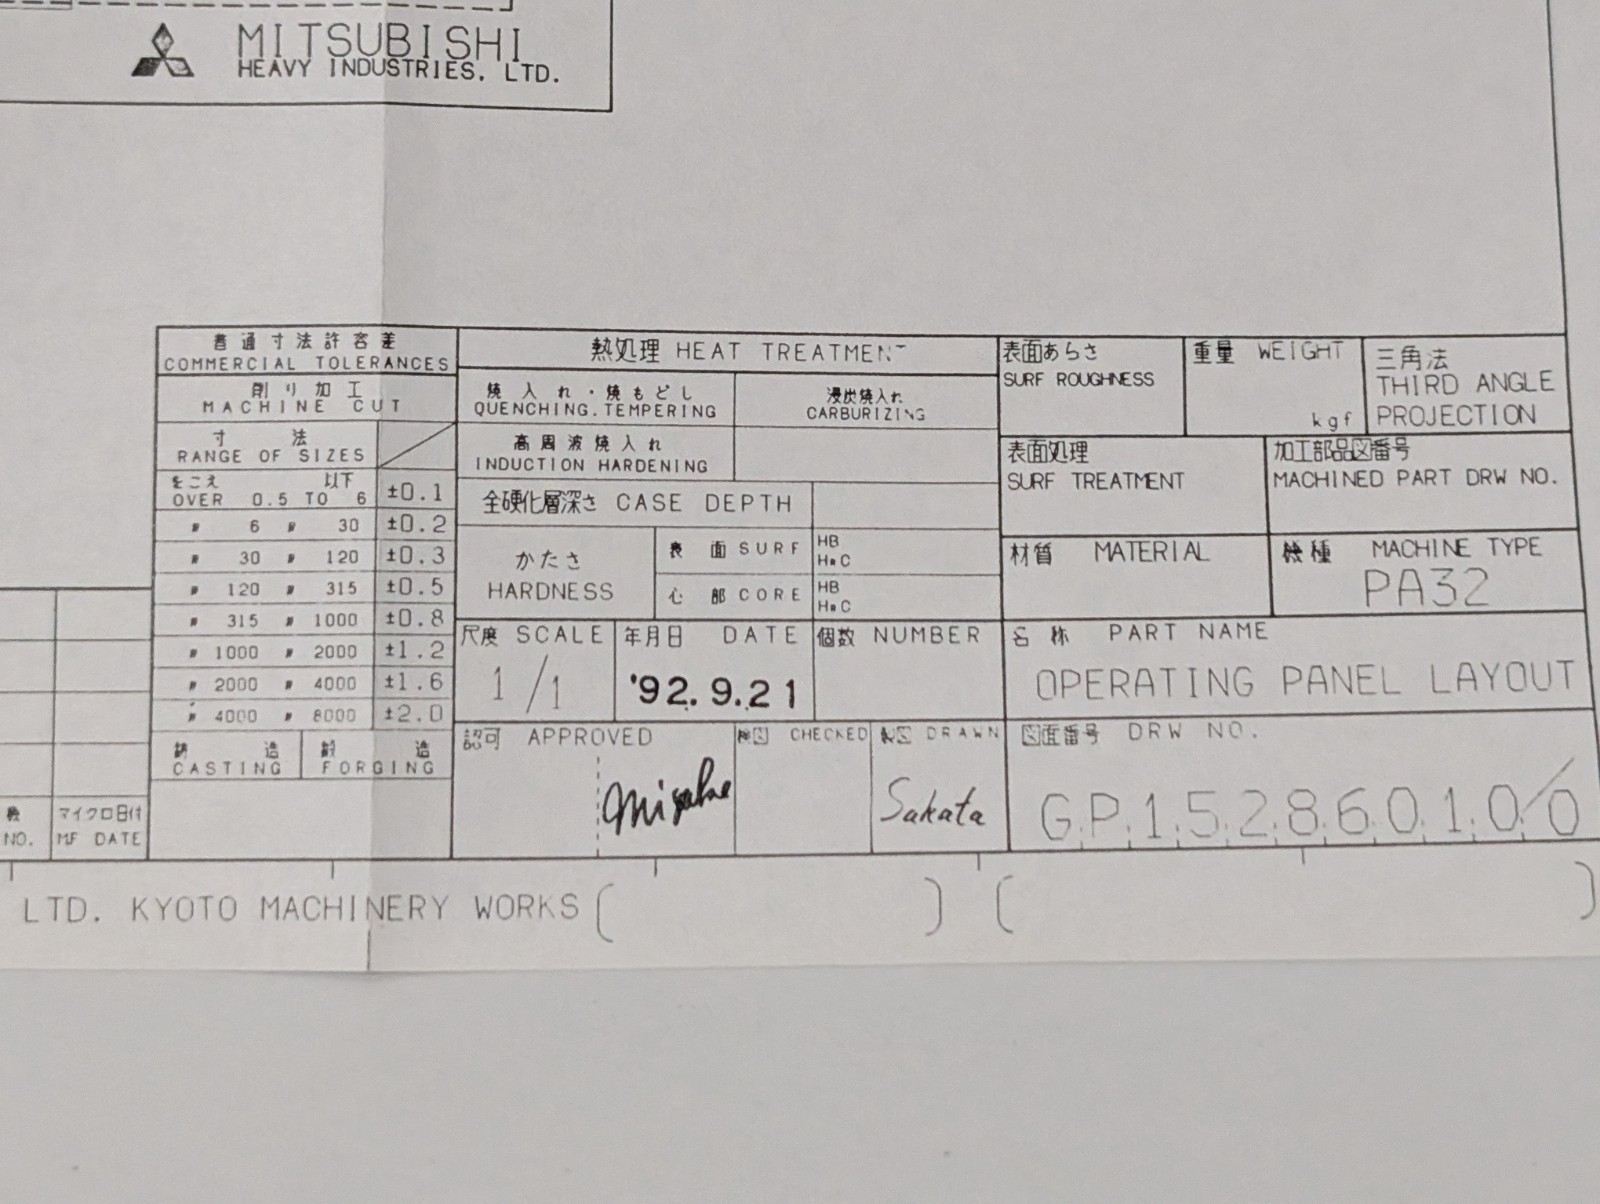 MITSUBISHI
HEAVY INDUSTRIES, LTD.
普通寸法許容差
COMMERCIAL TOLERANCES
削り加工
MACHINE CUT
寸法
RANGE OF SIZES
をこえ 以下
OVER 0.5 TO 6 ±0.1
〃 6 〃 30 ±0.2
〃 30 〃 120 ±0.3
〃 120 〃 315 ±0.5
〃 315 〃 1000 ±0.8
〃 1000 〃 2000 ±1.2
〃 2000 〃 4000 ±1.6
〃 4000 〃 8000 ±2.0
鋳造 鍛造
CASTING FORGING
NO.
マイクロ日付
MF DATE
熱処理 HEAT TREATMENT
焼入れ・焼もどし
QUENCHING.TEMPERING
浸炭焼入れ
CARBURIZING
高周波焼入れ
INDUCTION HARDENING
全硬化層深さ CASE DEPTH
かたさ
HARDNESS
表面 SURF
HB
HRC
心部 CORE
HB
HRC
尺度 SCALE
1/1
年月日 DATE
'92.9.21
個数 NUMBER
認可 APPROVED
検図 CHECKED
製図 DRAWN
Sakata
表面あらさ
SURF ROUGHNESS
重量 WEIGHT
kgf
三角法
THIRD ANGLE
PROJECTION
表面処理
SURF TREATMENT
加工部品図番号
MACHINED PART DRW NO.
材質 MATERIAL
機種 MACHINE TYPE
PA32
名称 PART NAME
OPERATING PANEL LAYOUT
図面番号 DRW NO.
G.P.1.5.2.8.6.0.1.0/0
LTD. KYOTO MACHINERY WORKS ( ) ( )